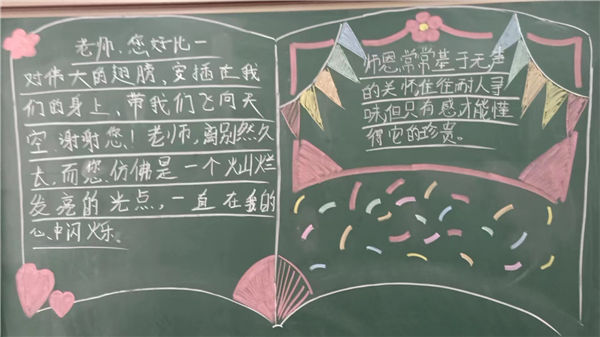 老师，您好比一
对伟大的翅膀，安插在我
们的身上，带我们飞向天
空，谢谢您！老师，离别然久
长，而您仿佛是一个灿烂
发亮的光点，一直在我的
心中闪烁。
师恩，常常基于无声
的关怀往往耐人寻
味，但只有感才能懂
得它的珍贵。